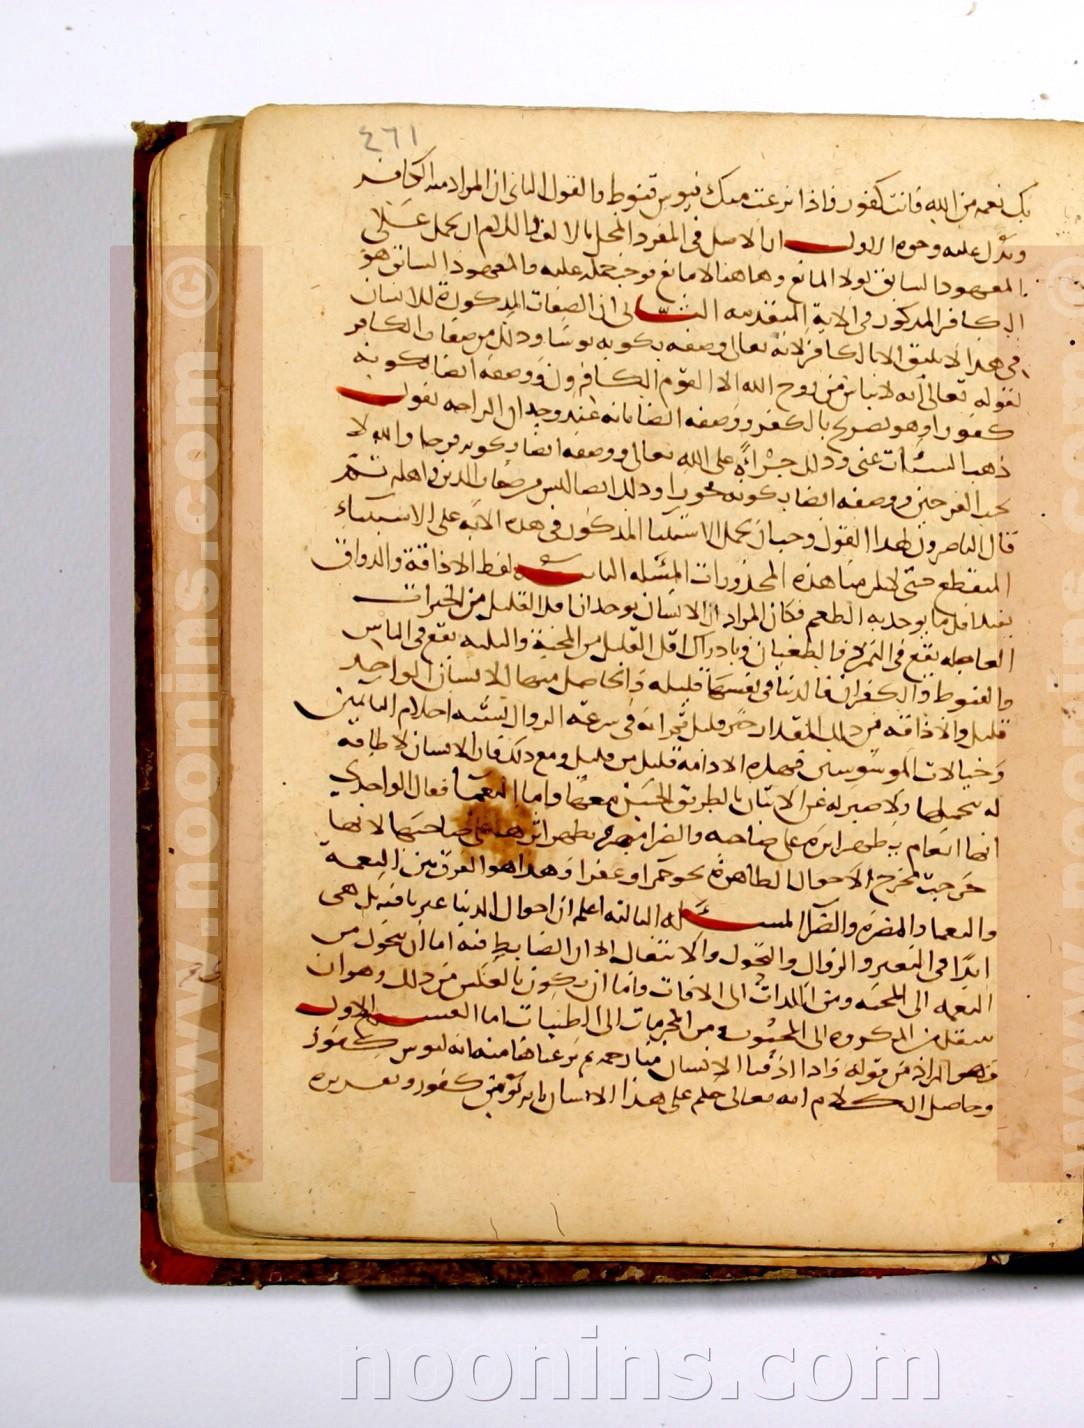 ٤٦١
بك نعمة من الله فانت كفور فاذا نزعت منك فيوس قنوط والقول الثانى ان المراد منه الكافر
ويدل عليه وجوه الاول ان الاصل فى المفرد المحلى بالالف واللام ان يحمل على
المعهود السابق لولا المانع وهاهنا لا مانع فوجب حمله عليه والمعهود السابق هو
الكافر المذكور فى الاية المتقدمة الثانى ان الصفات المذكورة للانسان
فى هذا لا يليق الا بالكافر لانه تعالى وصفه بكونه يوسا وذلك من صفات الكافر
لقوله تعالى انه لا يياس من روح الله الا القوم الكافرون ووصفه ايضا بكونه
كفورا وهو تصريح بالكفر ووصفه ايضا بانه عند وجدان الراحه يقول
ذهب السيئات عنى وذلك جراة على الله تعالى ووصفه ايضا بكونه فرحا والله لا
يحب الفرحين ووصفه ايضا بكونه فخورا وذلك ايضا ليس من صفات الدين اهله ثم
قال الناصرون لهذا القول وجب ان يحمل الاستثنا المذكور فى هذه الاية على الاستثناء
المنقطع حتى لا يلزمنا هذه المحذورات المسئله الثانيه لفظ الاذاقة والذواق
يفيد اقل ما يوجد به الطعم فكان المراد ان الانسان بوجدان اقل القليل من الخيرات
العاجله يقع فى التمرد والطغيان وبادراك اقل القليل من المحنة والبليه يقع فى الياس
والقنوط والكفران فالدنيا فى نفسها قليله والحاصل منها للانسان الواحد
قليل والاذاقه من ذلك المقدار خير قليل ثم انه فى سرعة الزوال يشبه احلام النايمين
وخيالات الموسوسين فهذه الاذاقه قليل من قليل ومع ذلك فان الانسان لا طاقه
له بتحملها ولا صبر له عن الاتيان بالطريق الحسن معها واما النعما فقال الواحدى
انها انعام يظهر اثره على صاحبه والضرا مضرة يظهر اثرها على صاحبها لانها
خرجت مخرج الاحوال الظاهرة نحو حمرا وعفرا وهذا هو الفرق بين النعمة
والنعما والمضرة والضرا المسئله الثالثه اعلم ان احوال الدنيا غير باقية بل هى
ابدا فى التغير والزوال والتحول والانتقال الا ان الضابط فيه اما ان يتحول من
النعمه الى المحنه ومن اللذات الى الافات واما ان يكون بالعكس من ذلك وهو ان
ينتقل من المكروه الى المحبوب ومن المحرمات الى الطيبات اما القسم الاول
فهو المراد من قوله واذا اذقنا الانسان منا رحمه ثم نزعناها منه انه ليوس كفور
وحاصل الكلام انه تعالى حكم على هذا الانسان بانه يوس كفور وتقريره